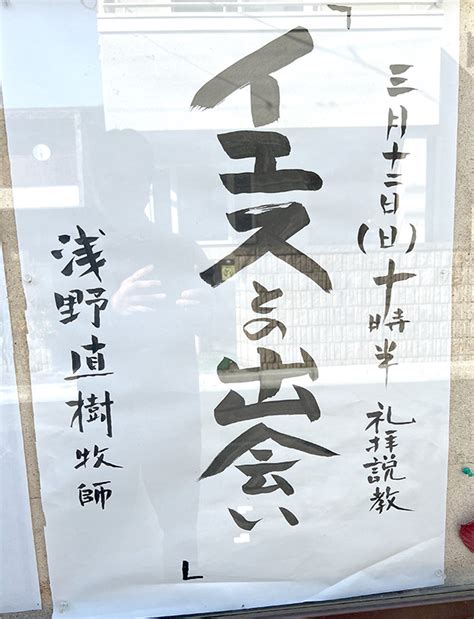 三月十二日(日)十時半 礼拝説教
「イエスとの出会い」
浅野直樹牧師